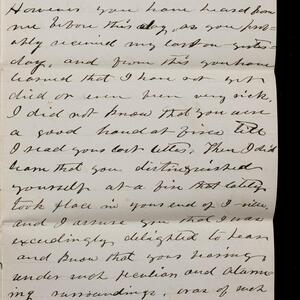 However you have heard from
me before this day, as you prob-
ably received my last on yester-
day, and from this you have
learned that I have not yet
died or even been very sick.
I did not know that you were
a good hand at fires till
I read your last letter. Then I did
learn that you distinguished
yourself at a fire that lately
took place in your end of
and I assure you that I was
exceedingly delighted to hear
and know that your
under such peculiar and alarm-
ing surroundings, was of such